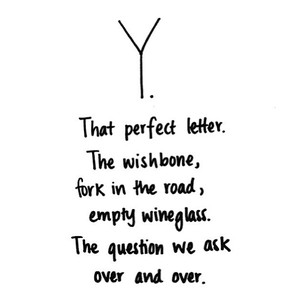 Y.
That perfect letter.
The wishbone,
fork in the road,
empty wineglass.
The question we ask
over and over.